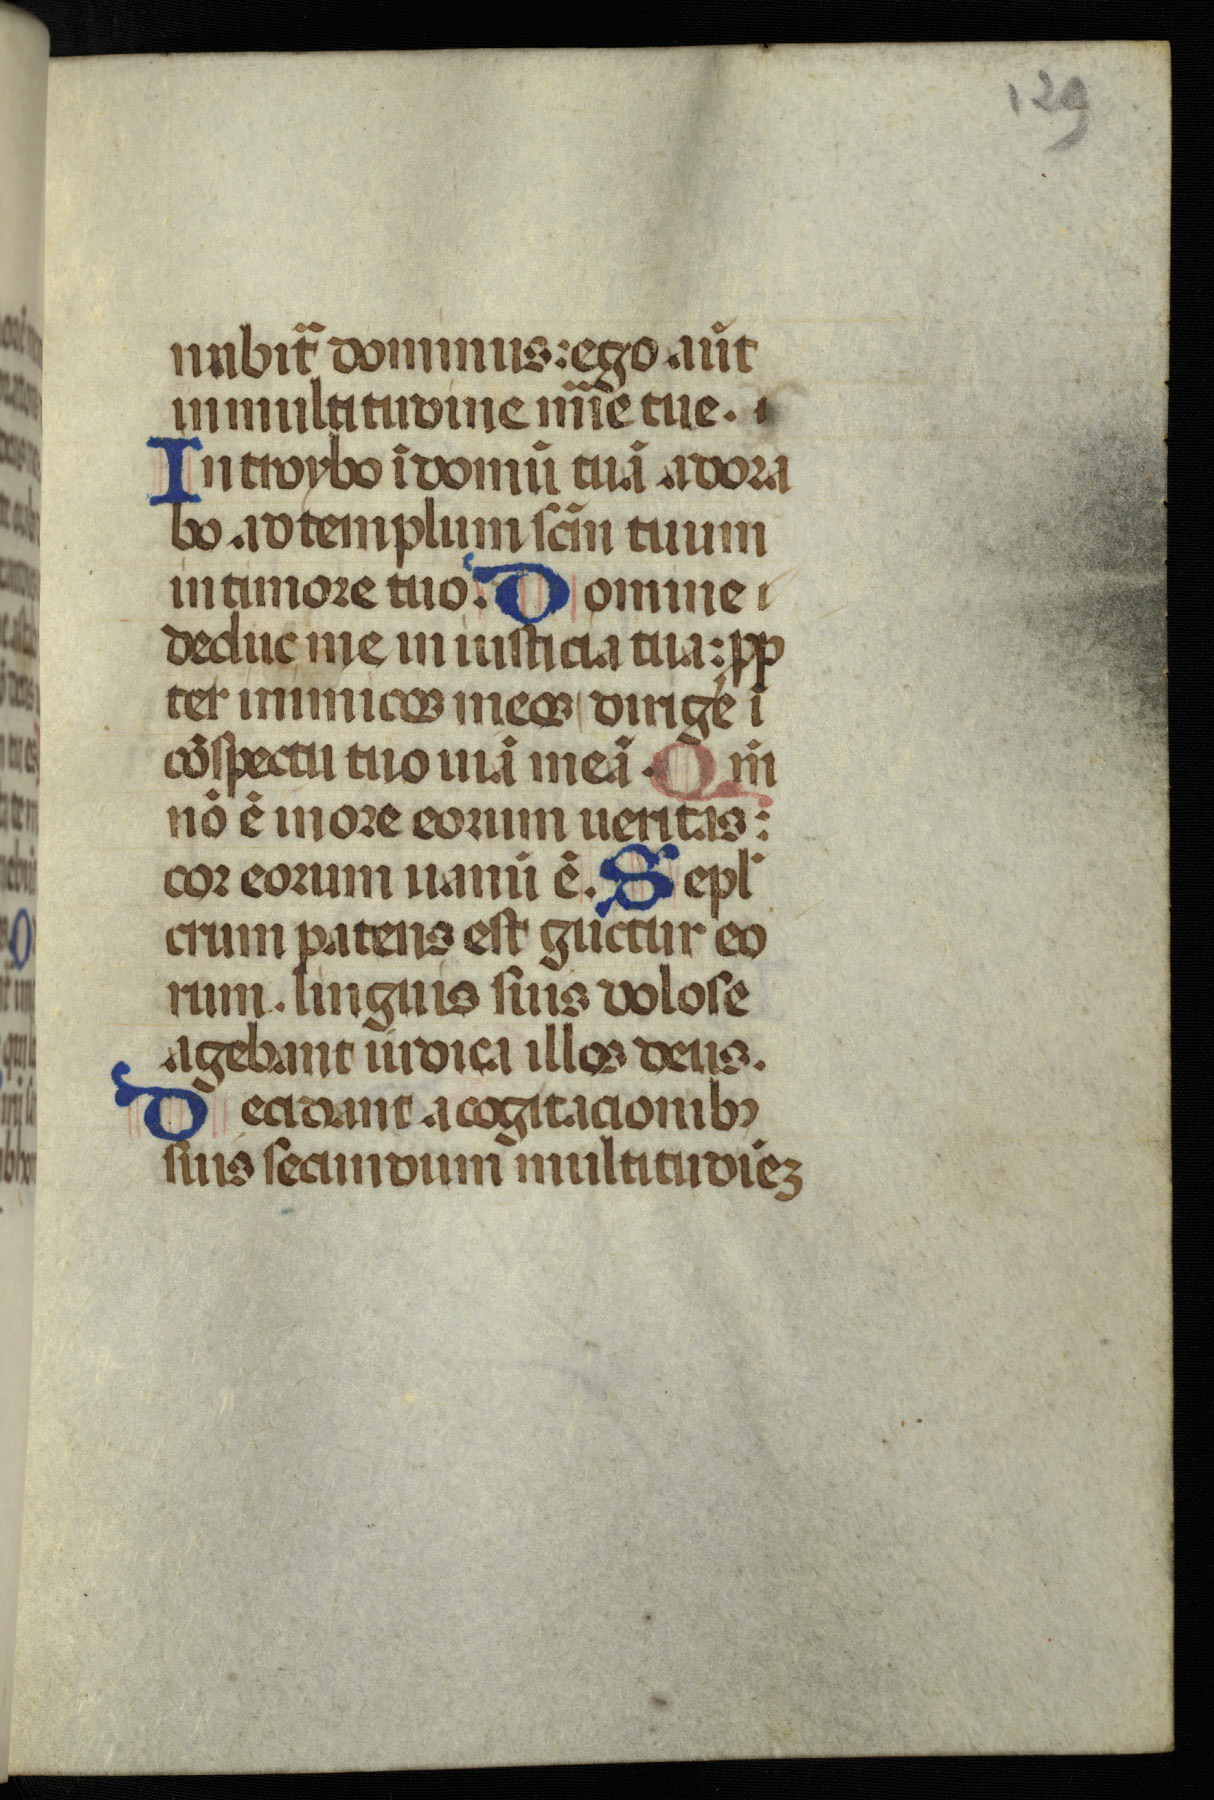 129
nabit̄ dominus: ego aūt
in multitudine mīe tue.
Introybo ī domū tuā adora
bo ad templum scm̄ tuum
in timore tuo. Domine
deduc me in iusticia tua: pp
ter inimicos meos dirige ī
cōspectu tuo uiā meā. Qm̄
nō ē in ore eorum ueritas:
cor eorum uanū ē. Sepl̄
crum patens est guctur eo
rum. linguis suis dolose
agebant iudica illos deus.
Decidant a cogitacionibȝ
suis secundum multitudīeȝ